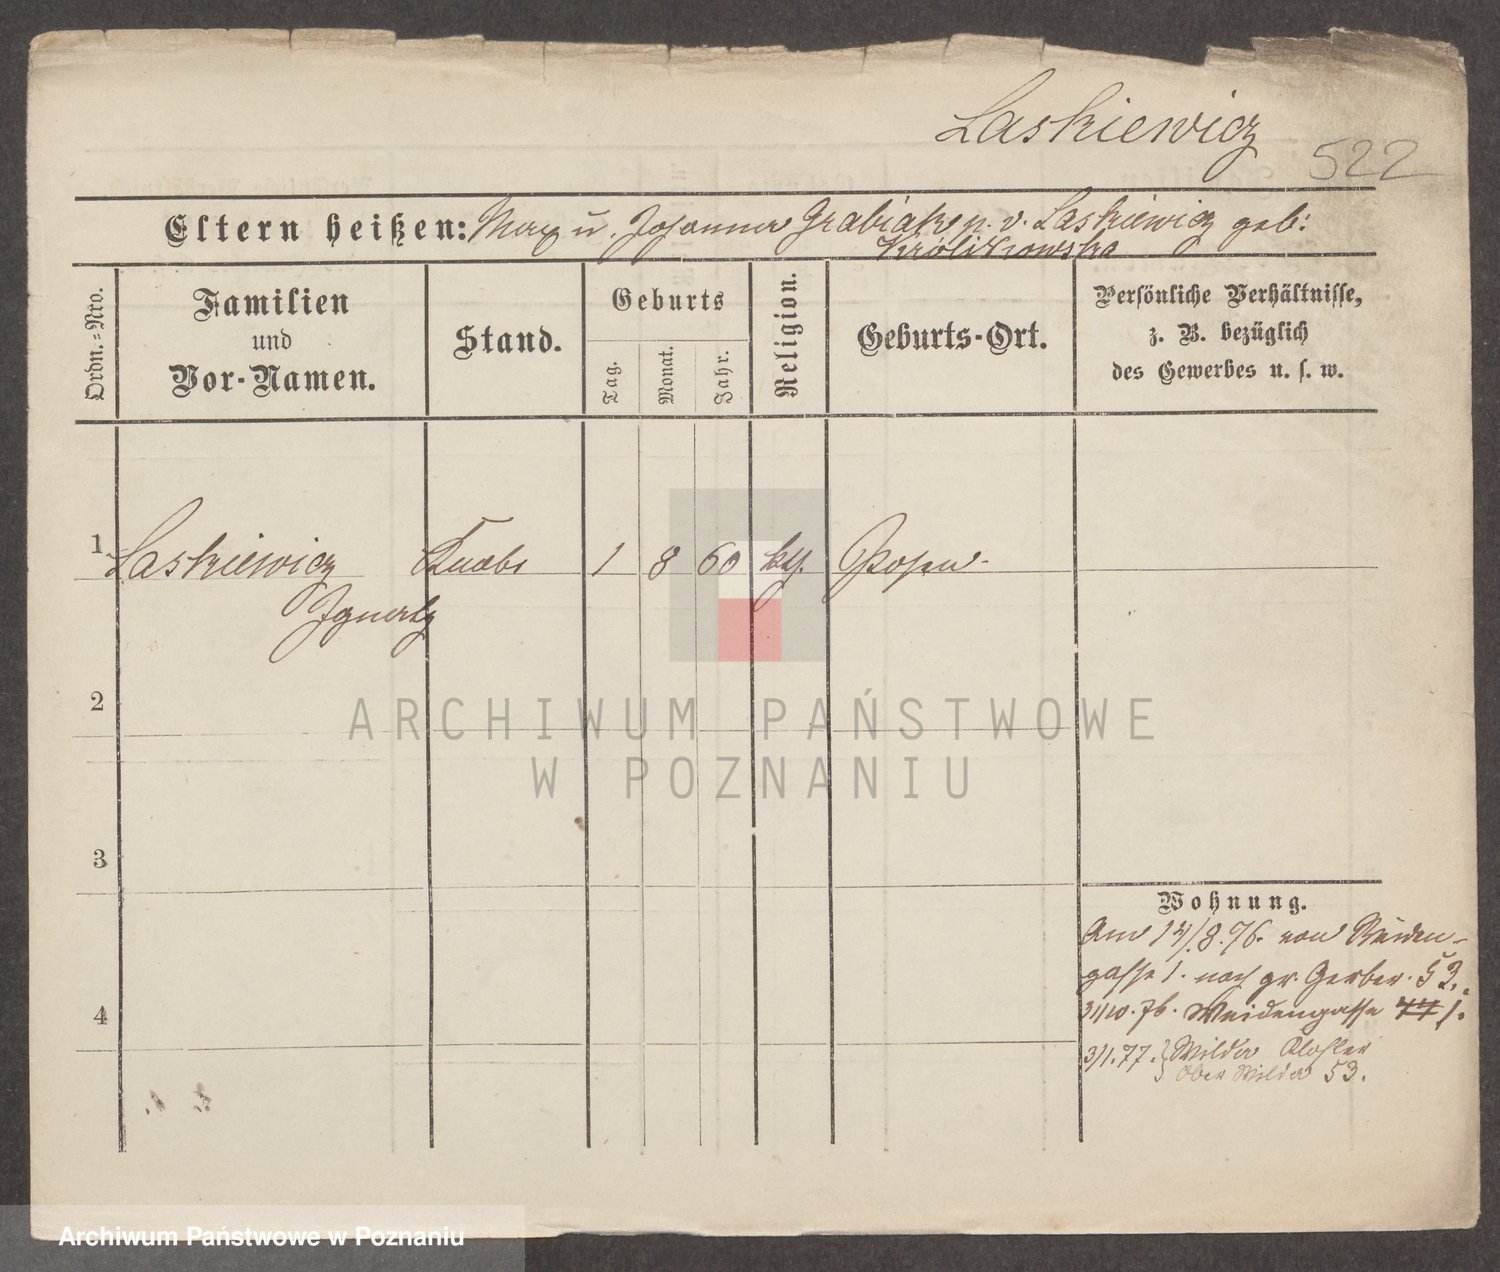 Laskiewicz
522
Eltern heißen: Max u. Johanna Grabiak n. v. Laskiewicz geb:
Królikowska
Ordn.-Nro.
Familien
und
Vor-Namen.
Stand.
Geburts
Tag.
Monat.
Jahr.
Religion.
Geburts-Ort.
Persönliche Verhältnisse,
z. B. bezüglich
des Gewerbes u. s. w.
1 Laskiewicz Knabe 1 8 60 kth. Posen
Ignatz
2
ARCHIWUM PAŃSTWOWE
W POZNANIU
3
Wohnung.
Am 14/8.76. von Weiden-
gasse 1. nach gr. Gerber. 53.
4
31/10.76. Weidengasse 1.
3/1.77. Wilda Kloster
Ober Wilda 53.
Archiwum Państwowe w Poznaniu